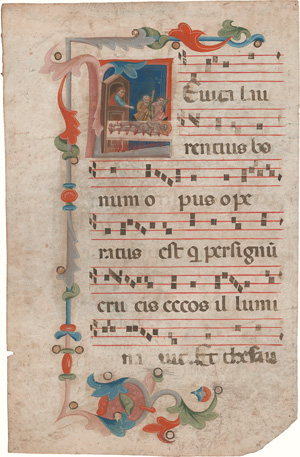 Leuita lau
rentius bo
num o pus ope
ratus est q persignũ
cru cis cecos il lumi
na uit Et thesau